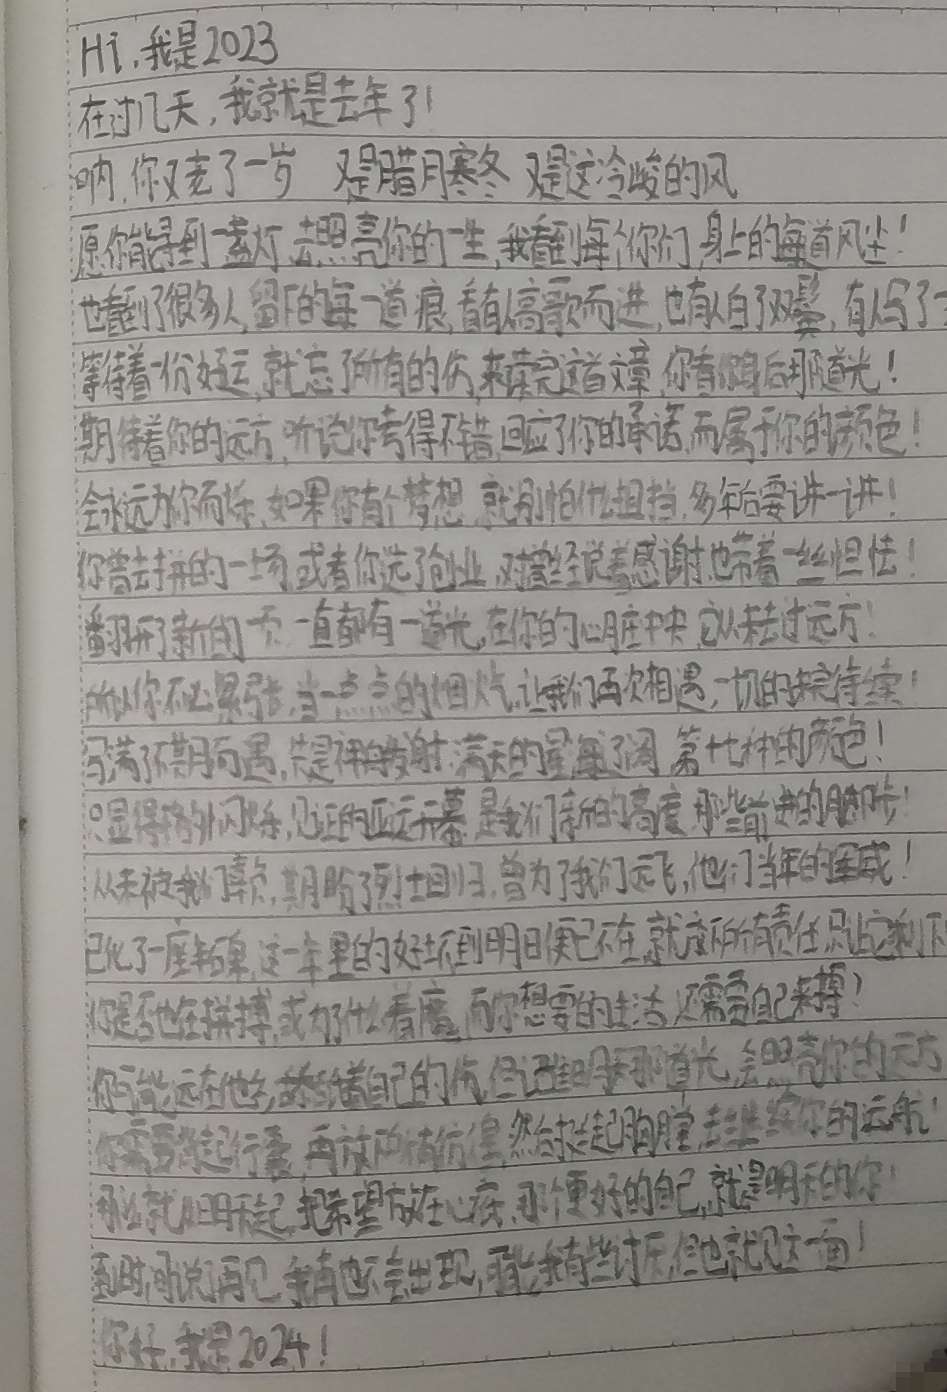 Hi,我是2023
在过几天,我就是去年了!
呐,你又老了一岁 又是腊月寒冬 又是这冷峻的风
愿你能寻到一盏灯,去照亮你的一生,我看到每个你们,身上的每道风尘!
也看到了很多人,留下的每一道痕,看有人高歌而进,也有人白了双鬓,有人写了一
等待着一份好运,就忘了所有的伤,来读完这首文章,你看你身后那道光!
期待着你的远方,听说你考得不错,回应了你的承诺,而属于你的颜色!
会永远为你而烁,如果你有个梦想,就别怕什么阻挡,多年后要讲一讲!
你曾去拼的一场,或者你选了创业,对曾经说着感谢,也带着一丝胆怯!
翻开了新的一页 一直都有一道光,在你的心脏中央,它从未去过远方!
所以你不必紧张,当一点点的烟火,让我们再次相遇,一切的未完待续!
写满了不期而遇,神舟发射,满天的星 颜色!
只显得格外闪烁,见证的亚运开幕,是我们新的高度,那些前进的脚步!
从未被我们辜负,期盼了烈士回归,曾为了我们远飞,他们当年的军威!
已化了一座丰碑,这一年里的好坏,到明日便已不在,就放下所有责任,只让它剩下
你是否也在拼搏,或为了什么着魔,而你想要的生活,还需要自己来搏!
你可能远在他乡,藏着自己的伤,但请相信那道光,会照亮你的远方
你需要背起行囊,再放下所有彷徨,然后挺起胸膛,去继续你的远航!
那么就从明天起,把希望放在心底,那个更好的自己,就是明天的你!
到时,听说了再见,我再也不会出现,可能我有些讨厌,但也就见这一面!
你好,我是2024!